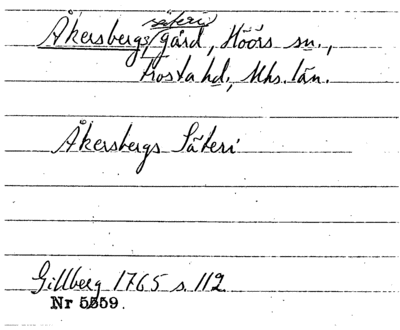 säteri
Åkersbergs gård, Höörs sn.,
Frosta hd., Mhs. län.
Åkersbergs Säteri
Gillberg 1765 s. 112
Nr 5559.